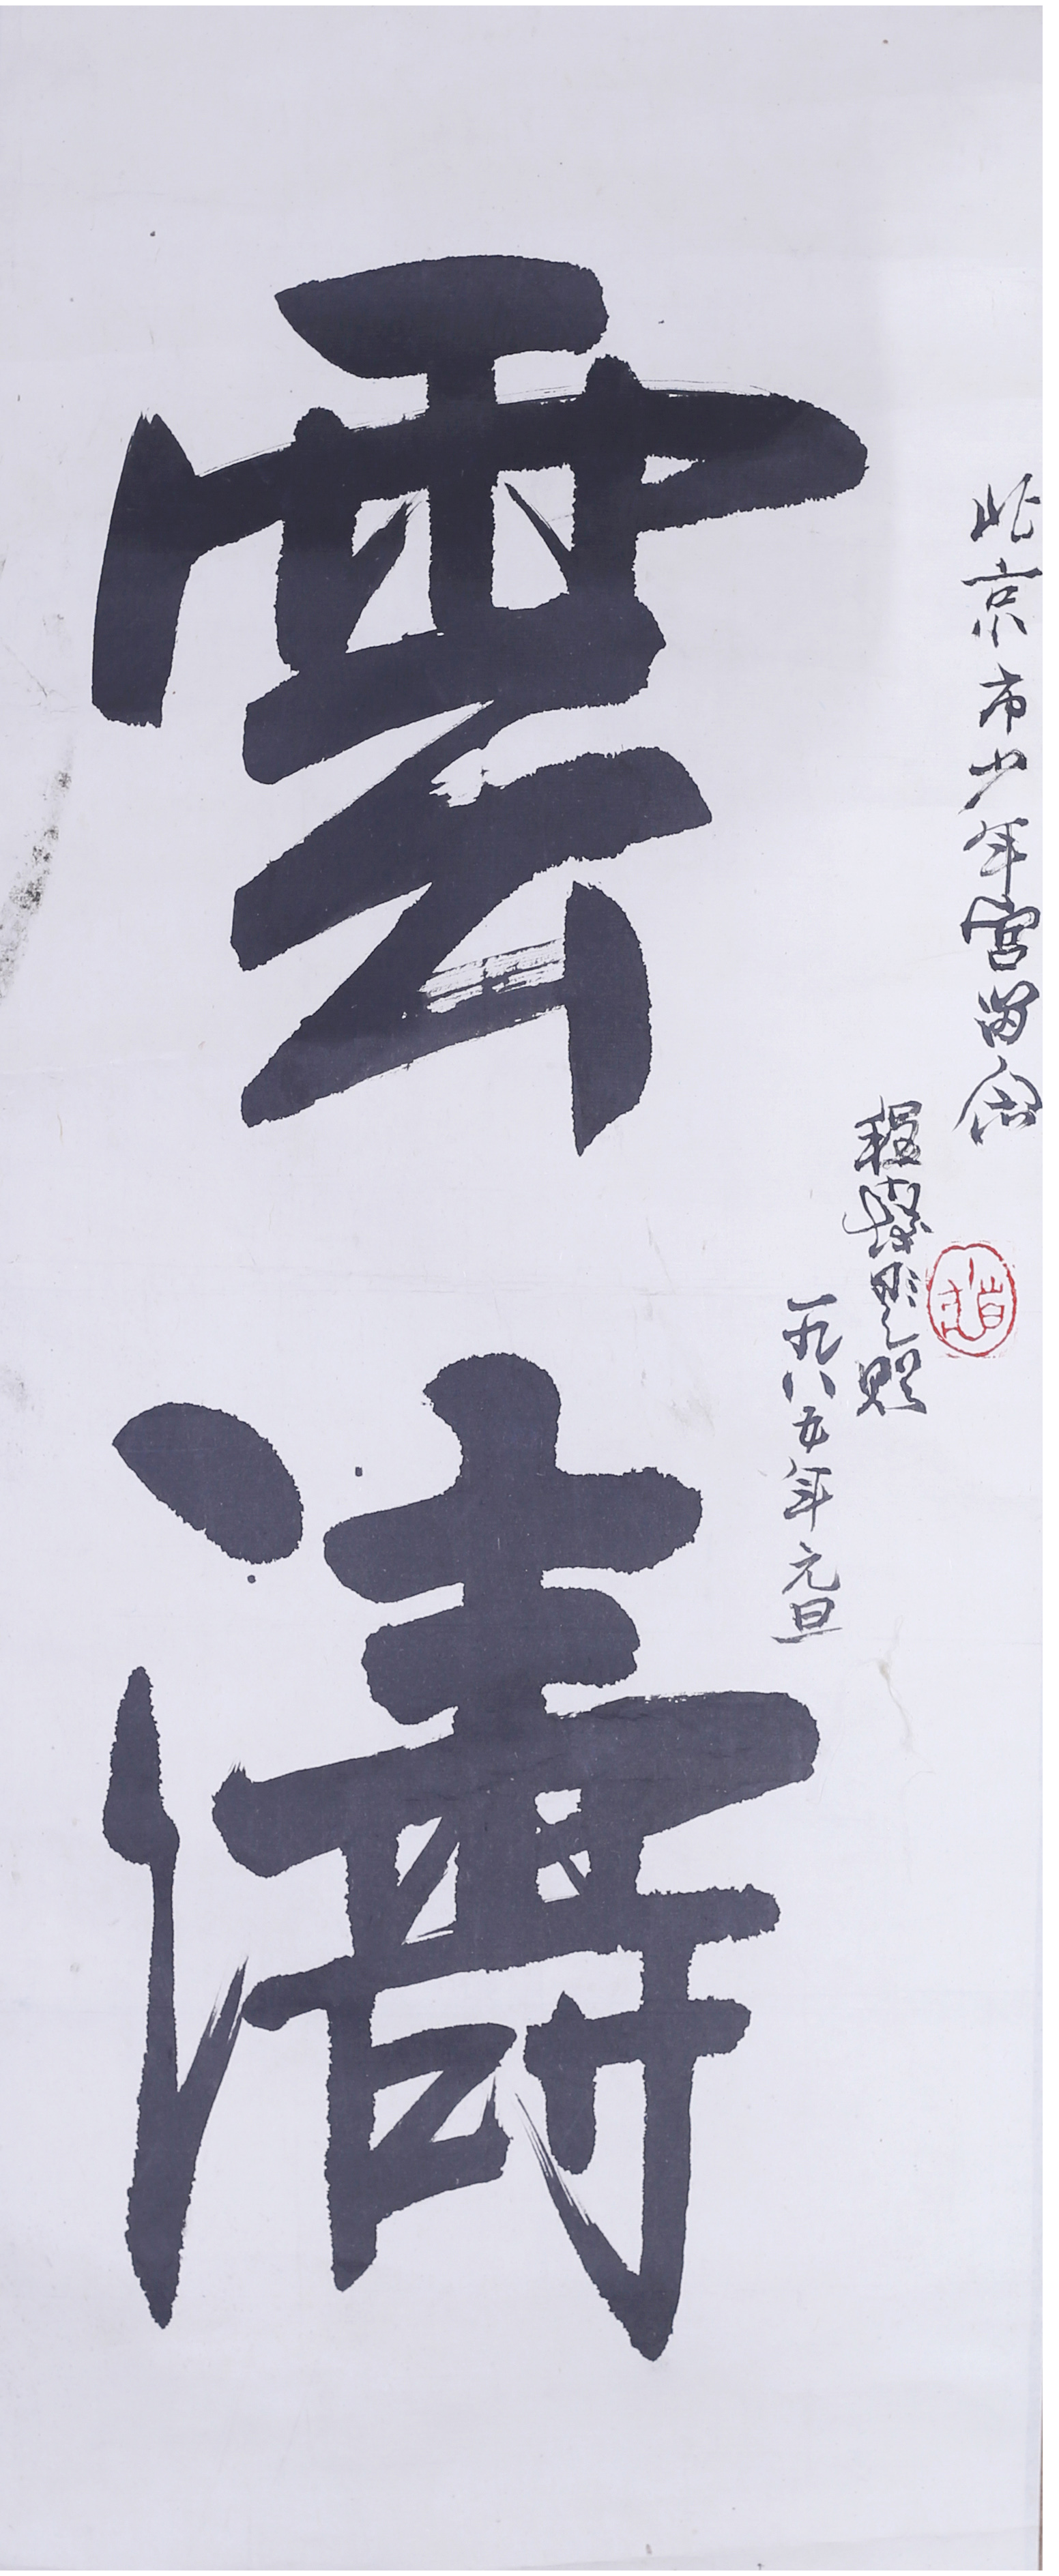 北京市少年宫留念
程
一九八五年元旦
雲濤